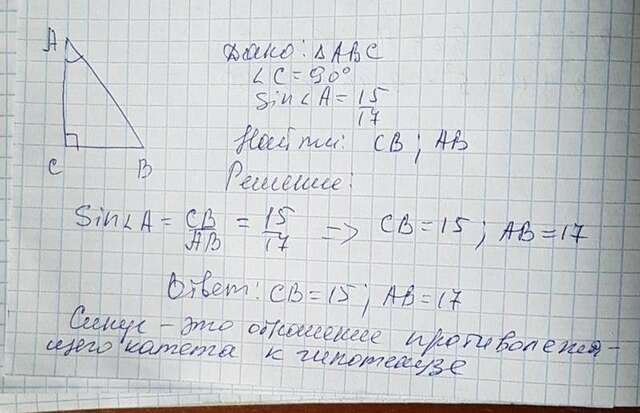 Дано: △ABC
∠C = 90°
Sin∠A = 15/17
Найти: CB; AB
A
C B
Решение:
Sin∠A = CB/AB = 15/17 => CB = 15; AB = 17
Ответ: CB = 15; AB = 17
Синус - это отношение противолежа-
щего катета к гипотенузе